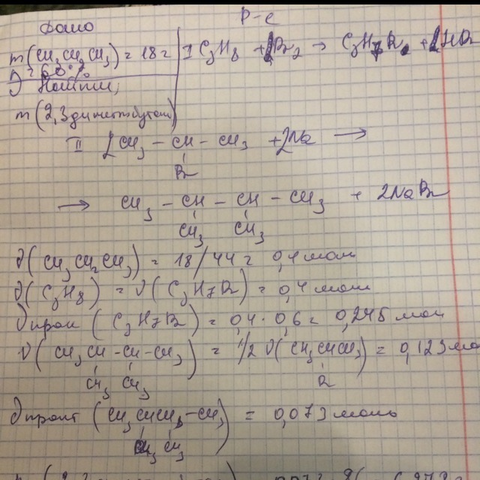 Дано Р-е
m(CH₃CH₂CH₃) = 18г I C₃H₈ + Br₂ → C₃H₇Br + HBr
η = 60%
Найти:
m(2,3диметилбутан)
II 2CH₃ - CH - CH₃ + 2Na →
Br
→ CH₃ - CH - CH - CH₃ + 2NaBr
CH₃ CH₃
ν(CH₃CH₂CH₃) = 18/44 = 0,4 моль
ν(C₃H₈) = ν(C₃H₇Br) = 0,4 моль
νпракт(C₃H₇Br) = 0,4 · 0,6 = 0,245 мол
ν(CH₃CH - CH - CH₃) = 1/2 ν(CH₃CHCH₃) = 0,123 мо
CH₃ CH₃
νпракт(CH₃CHCH - CH₃) = 0,073 моль
CH₃ CH₃